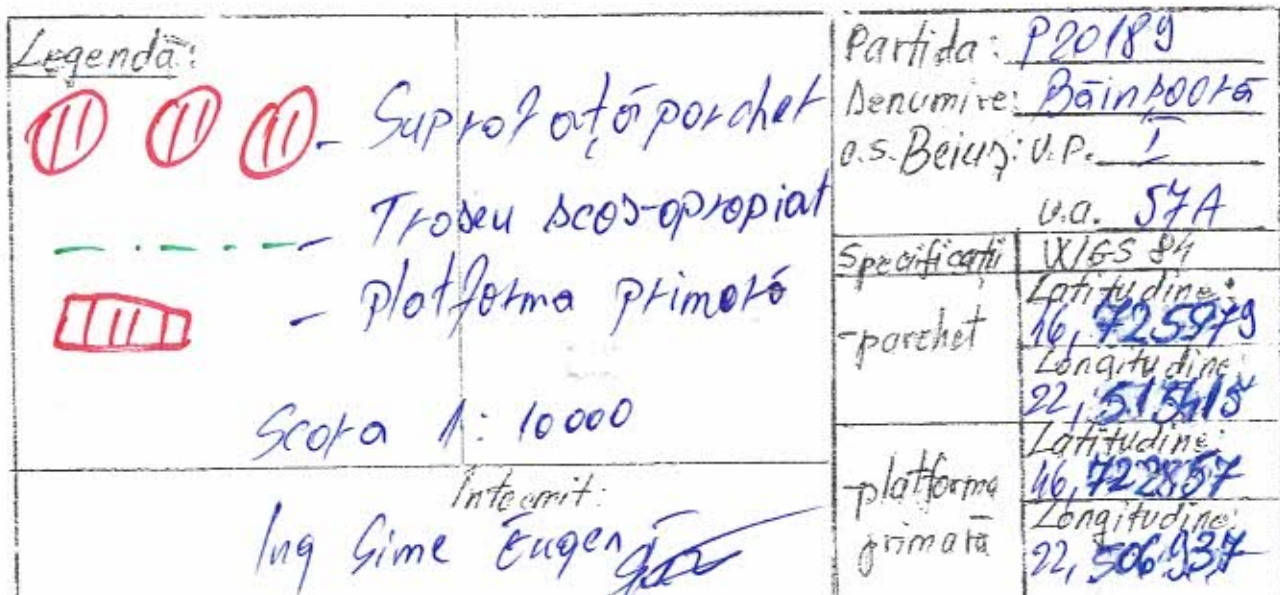 Legendă:
- Suprafață parchet
- Traseu scos-apropiat
- platforma primară
Scara 1: 10000
Întocmit:
Ing Gime Eugen
Partida: P20189
Denumire:
O.S. Beiuș: U.P. I
u.a. 57A
Specificații WGS 84
-parchet
Latitudine:
46,725979
Longitudine:
22,
-platforma primară
Latitudine:
46,722857
Longitudine:
22,506937